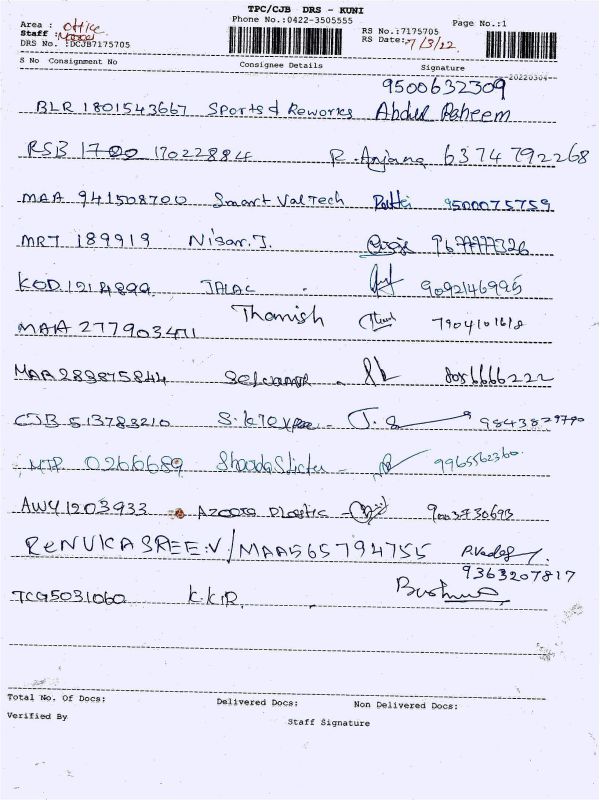 TPC/CJB DRS - KUNI
Phone No.:0422-3505555
Page No.:1
Area : office
Staff :
DRS No. :DCJB7175705
RS No.:7175705
RS Date: 7/3/22
S No Consignment No Consignee Details Signature
20220304
9500632309
BLR 1801543667 Sports & Reworks Abdul Raheem
RSB 17022884 R. Anjana 6374792268
MAA 941508700 Smart Val Tech 9500075759
MRT 189919 Nisar. J. 9677777326
KOD 1214899 JALAC 9092146995
MAA 277903411 Thamish 7904101618
MAA 283875844 8056666222
CJB 513783210 9843879790
MTP 0266689 9965562360
AWY 1203933 Azoora Plastic 9003730693
RENUKA SREE.V/MAA565794755
9363207817
TCG5031060 K.K.R.
Total No. Of Docs: Delivered Docs: Non Delivered Docs:
Verified By Staff Signature